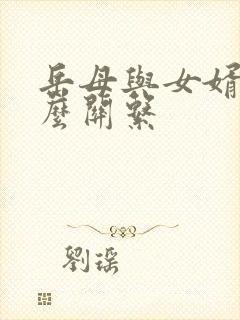 岳母與女婿
麼關繫
劉瑶